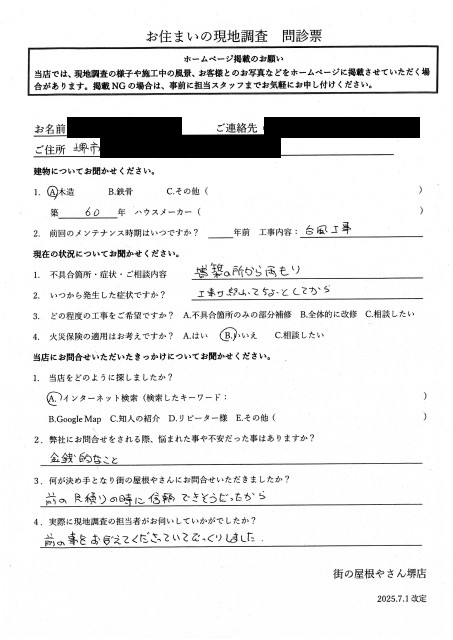 お住まいの現地調査　問診票
ホームページ掲載のお願い
当店では、現地調査の様子や施工中の風景、お客様とのお写真などをホームページに掲載させていただく場
合があります。掲載 NG の場合は、事前に担当スタッフまでお気軽にお申し付けください。
お名前　ご連絡先（
ご住所　堺市
建物についてお聞かせください。
1. A.木造　B.鉄骨　C.その他（　）
築　60　年　ハウスメーカー（　）
2. 前回のメンテナンス時期はいつですか？　年前　工事内容：台風工事
現在の状況についてお聞かせください。
1. 不具合箇所・症状・ご相談内容　増築の所から雨もり
2. いつから発生した症状ですか？　工事が終ってちょっとしてから
3. どの程度の工事をご希望ですか？ A.不具合箇所のみの部分補修 B.全体的に改修 C.相談したい
4. 火災保険の適用はお考えですか？ A.はい　B.いいえ　C.相談したい
当店にお問合せいただいたきっかけについてお聞かせください。
1. 当店をどのように探しましたか？
A.インターネット検索（検索したキーワード：　）
B.Google Map　C.知人の紹介　D.リピーター様　E.その他（　）
2．弊社にお問合せをされる際、悩まれた事や不安だった事はありますか？
金銭的なこと
3．何が決め手となり街の屋根やさんにお問合せいただきましたか？
前の見積りの時に信頼できそうだったから
4．実際に現地調査の担当者がお伺いしていかがでしたか？
前の事をおぼえてくださっていてびっくりしました.
街の屋根やさん堺店
2025.7.1 改定